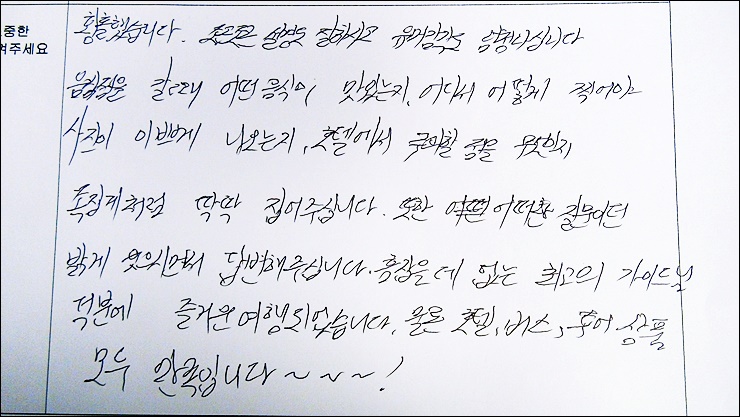 중한
겨주세요
황홀했습니다. 조근조근 설명도 잘하시고 유머감각도 엄청나십니다
음식점은 갈때 어떤 음식이 맛있는지, 어디서 어떻게 찍어야
사진이 이쁘게 나오는지, 호텔에서 주의할 점은 무엇인지
족집게처럼 딱딱 집어주십니다. 또한 어떠한 질문이던
밝게 웃으시면서 답변해주십니다. 흠잡을데 없는 최고의 가이드님
덕분에 즐거운 여행되었습니다. 물론 호텔, 버스, 투어 상품
모두 만족입니다~~~!